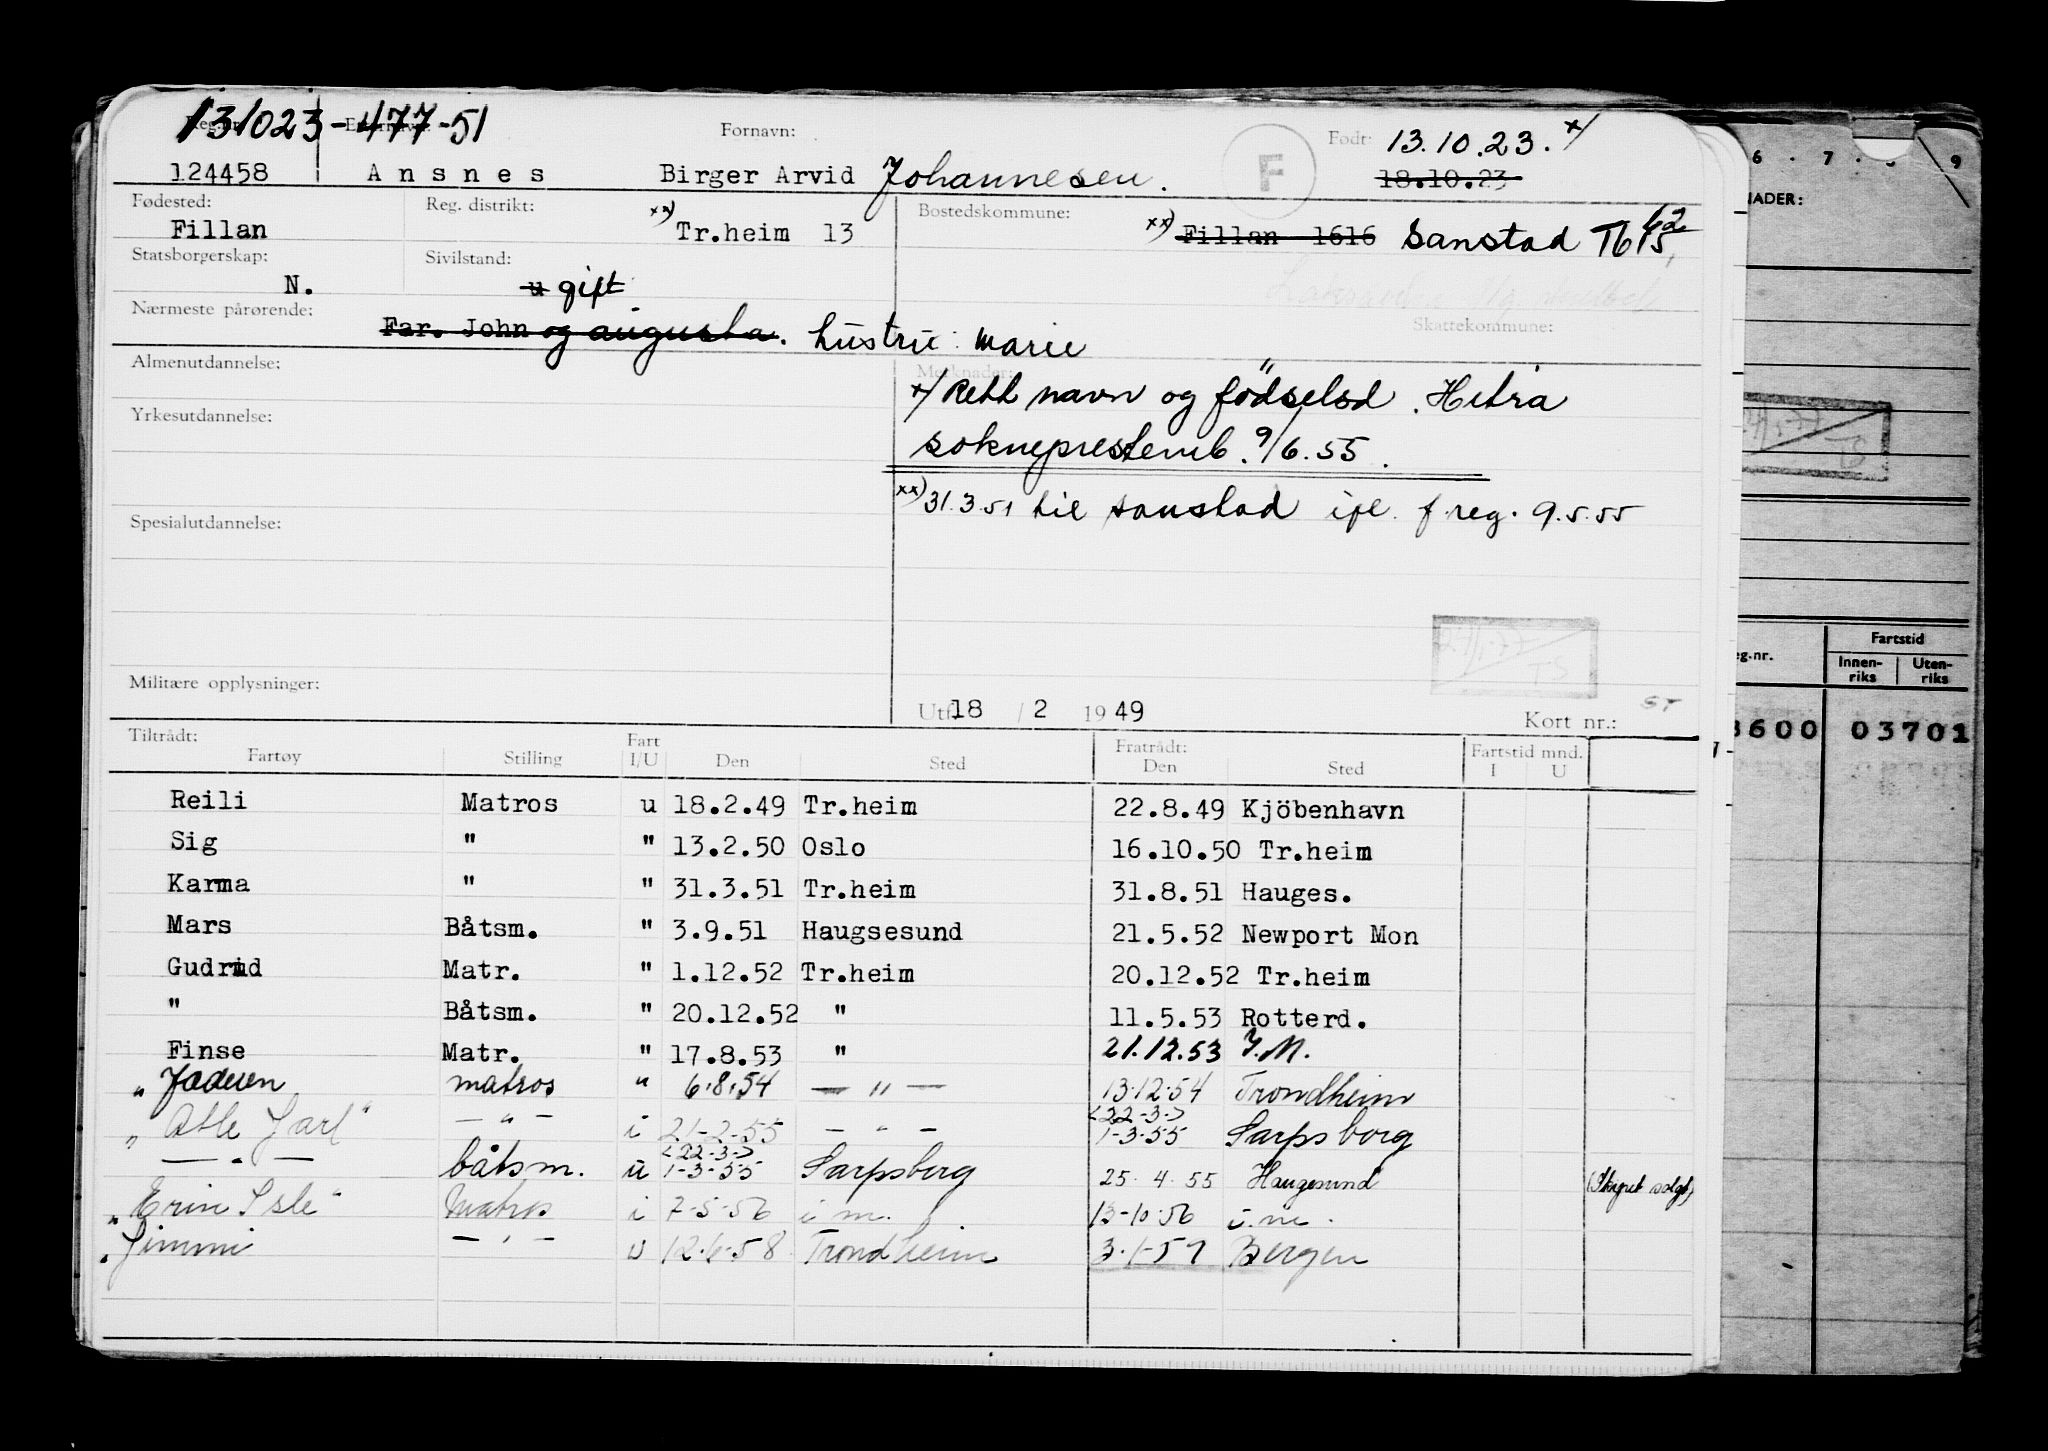 131023-477-51
Fornavn: Født: 13.10.23. x/
124458 Ansnes Birger Arvid Johannesen. F 18.10.23
Fødested: Reg. distrikt: Bostedskommune:
Fillan xx) Tr.heim 13 xx) Fillan 1616 Sanstad T615, 62
Statsborgerskap: Sivilstand:
N. u gift
Nærmeste pårørende: Skattekommune:
Far. John og augusta. hustru: Marie
Almenutdannelse: Merknader:
x/ Rett navn og fødselsd. Hitra
Yrkesutdannelse:
sokneprestemb. 9/6.55.
xx) 31.3.51 til Sanstad ifl. f.reg. 9.5.55
Spesialutdannelse:
24/1-77 TS
Militære opplysninger:
Utf. 18 / 2 1949 Kort nr.: ST
Tiltrådt: Fart Fratrådt: Fartstid mnd.
Fartøy Stilling I/U Den Sted Den Sted I U
Reili Matros u 18.2.49 Tr.heim 22.8.49 Kjöbenhavn
Sig " " 13.2.50 Oslo 16.10.50 Tr.heim
Karma " " 31.3.51 Tr.heim 31.8.51 Hauges.
Mars Båtsm. " 3.9.51 Haugsesund 21.5.52 Newport Mon
Gudrid Matr. " 1.12.52 Tr.heim 20.12.52 Tr.heim
" Båtsm. " 20.12.52 " 11.5.53 Rotterd.
Finse Matr. " 17.8.53 " 21.12.53 I.M.
" Jaderen matros " 6.8.54 — " — 13.12.54 Trondheim
" Atle Jarl" — " — i 21-2-55 — " — <22-3-> 1-3-55 Sarpsborg
— " — båtsm. u <22-3-> 1-3-55 Sarpsborg 25.4.55 Haugesund (Skipet solgt)
"Erin Isle" Matros i 7-5-56 i m. 13-10-56 i.m.
"Jimmi — " — u 12.6-58 Trondheim 3.1-59 Bergen
6 . 7 . 8 . 9
NADER:
24/1-77 TS
eg.nr. Fartstid
Innen-riks Uten-riks
3600 03701